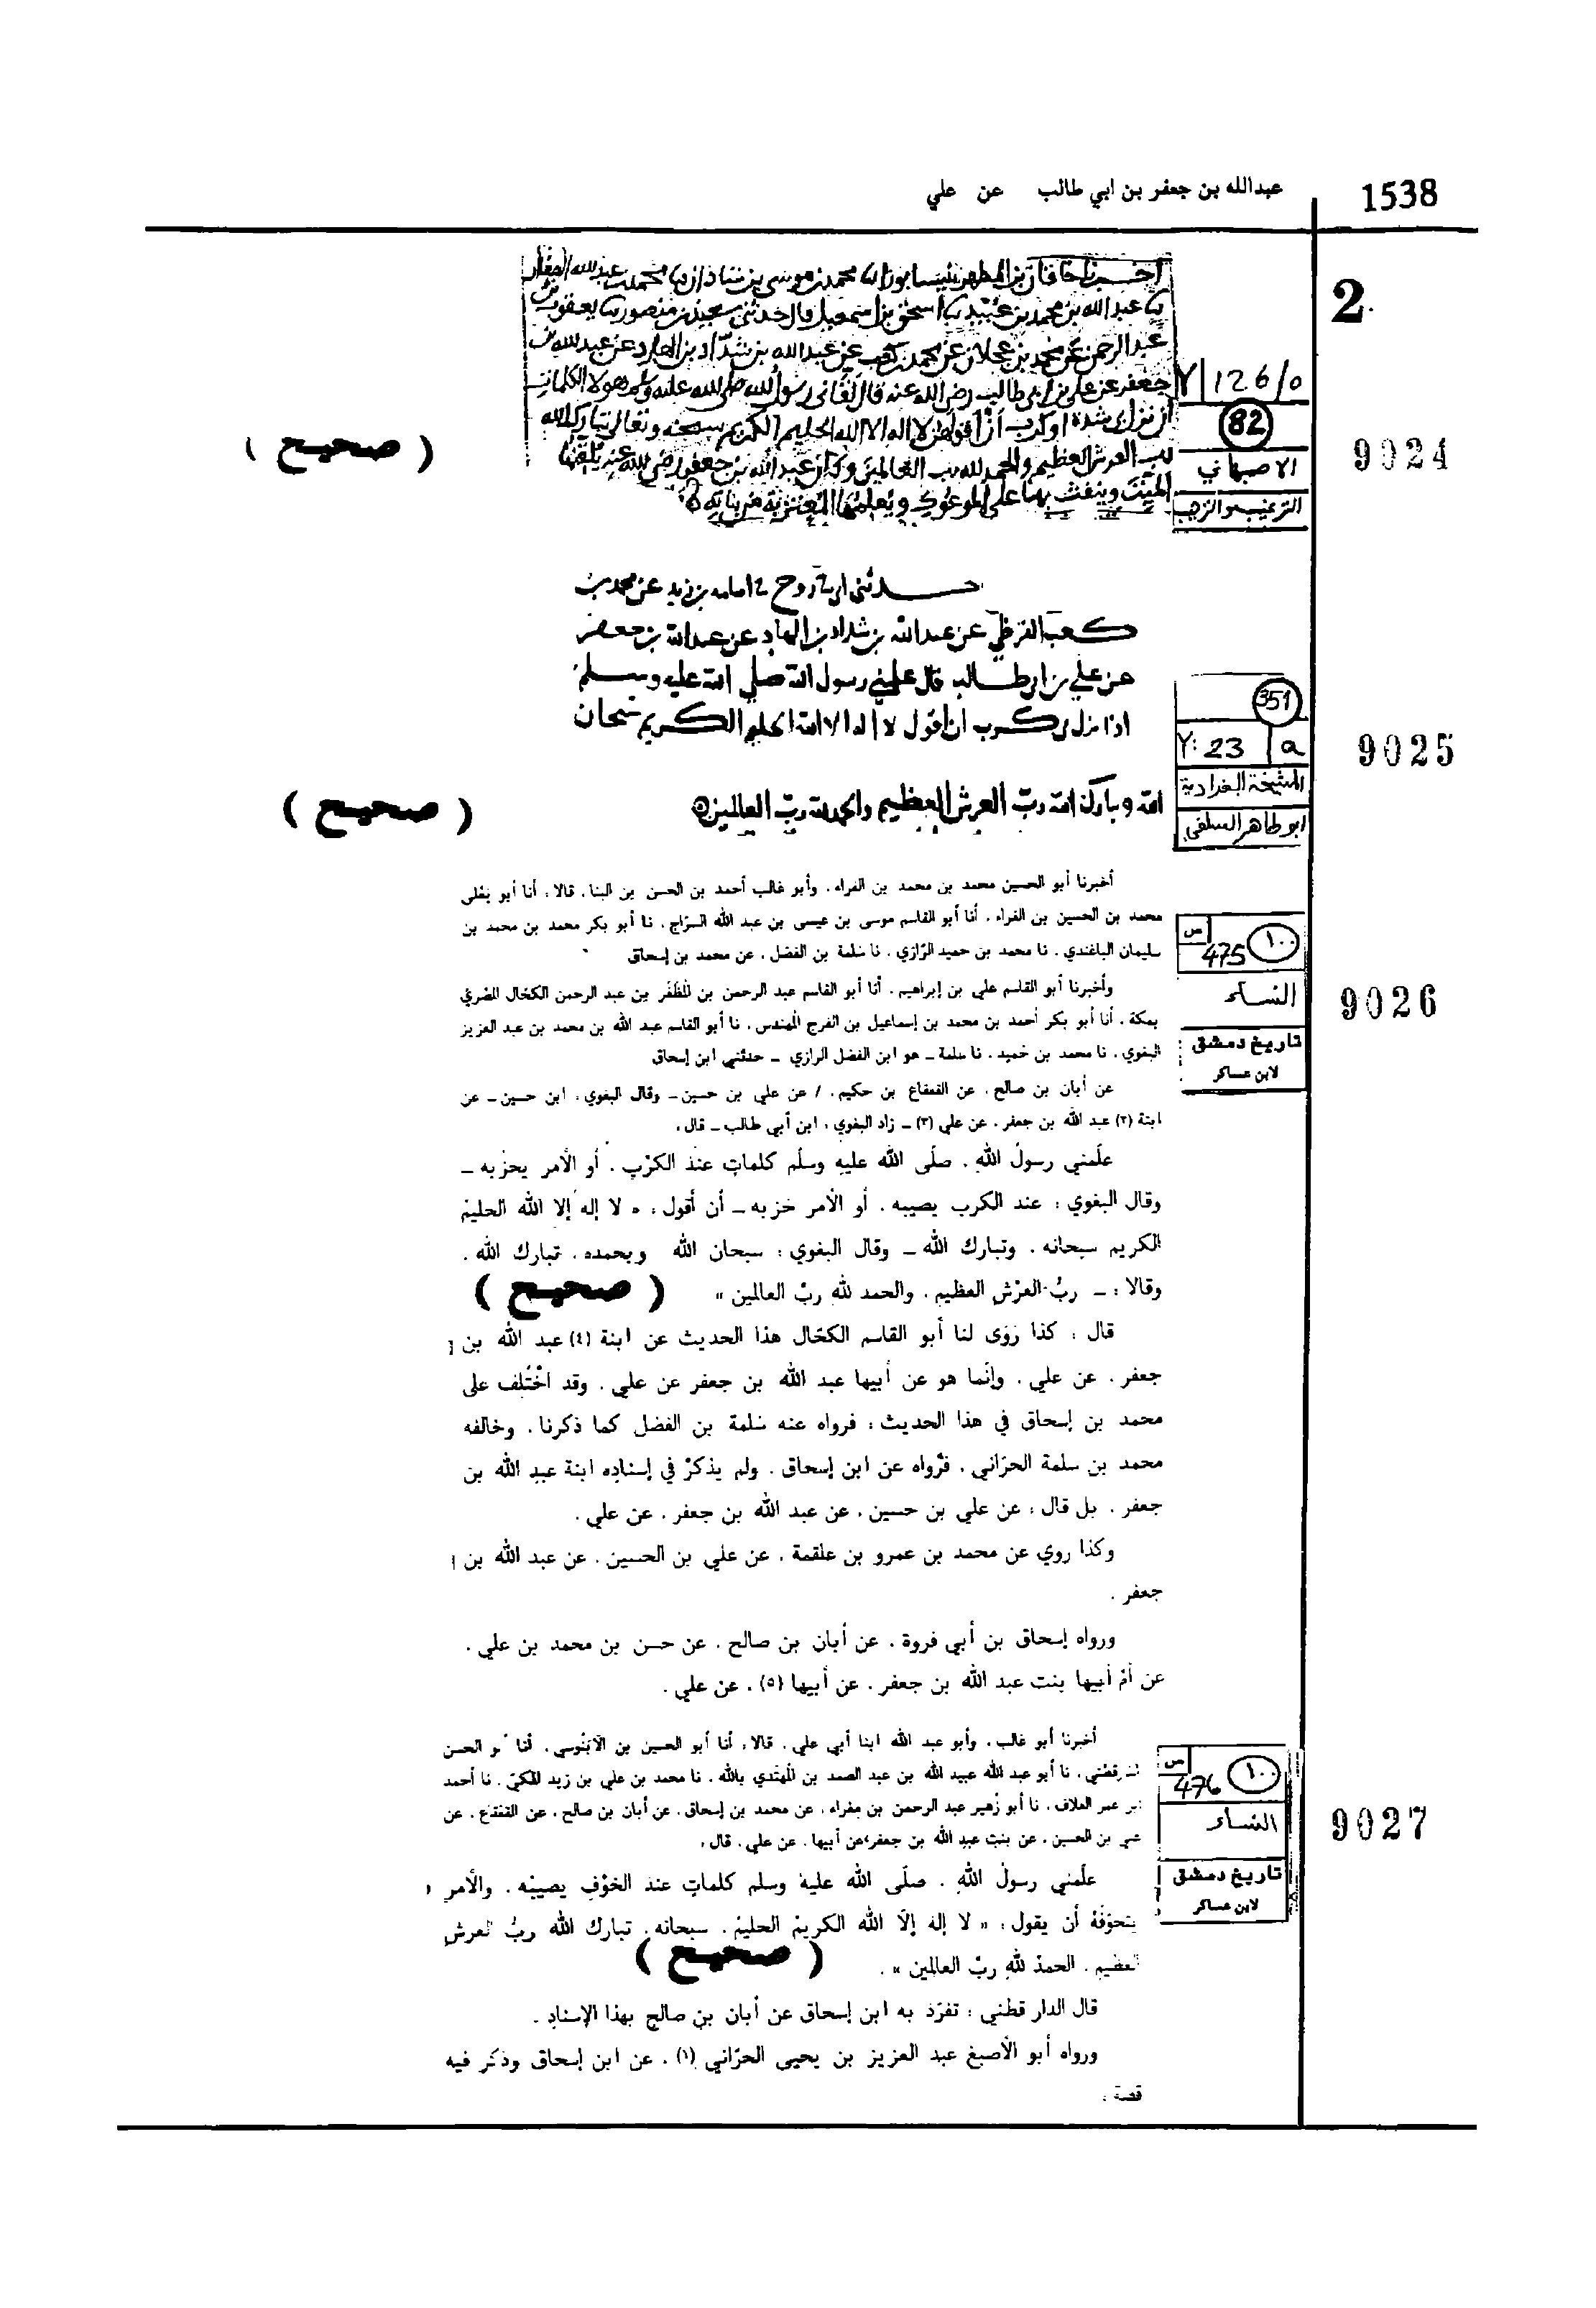 1538
عبدالله بن جعفر بن ابي طالب عن علي
2
اخبرنا خاقان بن المطهر بنيسابور انا محمد بن موسى بن شاذان نا محمد بن عبدالله الصفار
نا عبدالله بن محمد بن عبيد نا اسحق بن اسمعيل قال حدثني سعيد بن منصور نا يعقوب بن
عبد الرحمن عن محمد بن عجلان عن محمد بن كعب عن عبدالله بن شداد بن الهاد عن عبدالله بن
جعفر عن علي بن ابي طالب رضي الله عنه قال لقاني رسول الله صلى الله عليه وسلم هولا الكلمات
ان نزل بي شدة او كرب ان اقولهن لا اله الا الله الحليم الكريم سبحنه وتعالى تبارك الله
رب العرش العظيم والحمد لله رب العالمين وكان عبدالله بن جعفر رضي الله عنه يلقنها
الميت وينفث بها على الموعوك ويعلمها المغتربة من بناته
126/
82
الاصبهاني
الترغيب والترهيب
9024
( صحيح )
حدثني ابي نا روح نا اسامه بن زيد عن محمد بن
كعب القرظي عن عبدالله بن شداد بن الهاد عن عبدالله بن جعفر
عن علي بن ابي طالب قال علمني رسول الله صلي الله عليه وسلم
اذا نزل بي كرب ان اقول لا اله الا الله الحليم الكريم سبحان
الله وتبارك الله رب العرش العظيم والحمد لله رب العالمين
351
23 a
المشيخة البغدادية
ابو طاهر السلفي
9025
( صحيح )
أخبرنا أبو الحسين محمد بن محمد بن الفراء، وأبو غالب أحمد بن الحسن بن البنا، قالا: أنا أبو يعلى
محمد بن الحسين بن الفراء، أنا أبو القاسم موسى بن عيسى بن عبد الله السراج، نا أبو بكر محمد بن محمد بن
سليمان الباغندي، نا محمد بن حميد الرازي، نا سلمة بن الفضل، عن محمد بن إسحاق
وأخبرنا أبو القاسم علي بن إبراهيم، أنا أبو القاسم عبد الرحمن بن المظفر بن عبد الرحمن الكحال المصري
بمكة، أنا أبو بكر أحمد بن محمد بن إسماعيل بن الفرج المهندس، نا أبو القاسم عبد الله بن محمد بن عبد العزيز
البغوي، نا محمد بن حميد، نا سلمة – هو ابن الفضل الرازي – حدثني ابن إسحاق
عن أبان بن صالح، عن القعقاع بن حكيم، / عن علي بن حسين – وقال البغوي: ابن حسين – عن
ابنة (٢) عبد الله بن جعفر، عن علي (٣) – زاد البغوي: ابن أبي طالب – قال:
علّمني رسولُ اللهِ، صلّى الله عليهِ وسلّم كلماتٍ عندَ الكرْبِ، أو الأمر يحزُبه –
وقال البغوي: عند الكرب يصيبه، أو الأمر حزبه – أن أقول: « لا إله إلا الله الحليمُ
الكريم سبحانه، وتبارك الله – وقال البغوي: سبحان الله وبحمده، تبارك الله،
وقالا: – ربُّ العرْشِ العظيم، والحمد للهِ ربّ العالمين »
( صحيح )
قال: كذا رَوَى لنا أبو القاسم الكحّال هذا الحديث عن ابنة (٤) عبد الله بن
جعفر، عن علي، وإنّما هو عن أبيها عبد الله بن جعفر عن علي، وقد اخْتُلف على
محمد بن إسحاق في هذا الحديث: فرواه عنه سَلمة بن الفضل كما ذكرنا، وخالفه
محمد بن سلمة الحرّاني، فرواه عن ابن إسحاق، ولم يذكرْ في إسنادِه ابنة عبدِ الله بن
جعفر، بل قال: عن علي بن حسين، عن عبد الله بن جعفر، عن علي.
وكذا روي عن محمد بن عمرو بن علقمة، عن علي بن الحسين، عن عبد الله بن
جعفر.
ورواه إسحاق بن أبي فروة، عن أبان بن صالح، عن حسن بن محمد بن علي،
عن أمّ أبيها بنت عبد الله بن جعفر، عن أبيها (٥)، عن علي.
ص
475
١٠٠
النساء
تاريخ دمشق
لابن عساكر
9026
أخبرنا أبو غالب، وأبو عبد الله ابنا أبي علي، قالا: أنا أبو الحسين بن الآبنوسي، أنا بو الحسن
رقطني، نا أبو عبد الله عبيد الله بن عبد الصمد بن المهتدي بالله، نا محمد بن علي بن زيد المكي، نا أحمد
بن عمر العلاف، نا أبو زهير عبد الرحمن بن مغراء، عن محمد بن إسحاق، عن أبان بن صالح، عن القعقاع، عن
علي بن الحسين، عن بنت عبد الله بن جعفر، عن أبيها، عن علي، قال:
علّمني رسولُ اللهِ، صلّى الله عليهِ وسلم كلماتٍ عند الخوْفِ يصيبُه، والأمر
يتخوّفُهُ أن يقول: « لا إلهَ إلّا الله الكريمُ الحليمُ، سبحانه، تبارك الله ربُّ العرش
العظيم، الحمدُ للهِ ربّ العالمين ».
( صحيح )
قال الدار قطني: تفرّد به ابن إسحاق عن أبان بنِ صالحٍ بهذا الإسنادِ.
ورواه أبو الأصبغ عبد العزيز بن يحيى الحرّاني (١)، عن ابن إسحاق وذكر فيه
قصة:
ص
476
١٠٠
النساء
تاريخ دمشق
لابن عساكر
9027